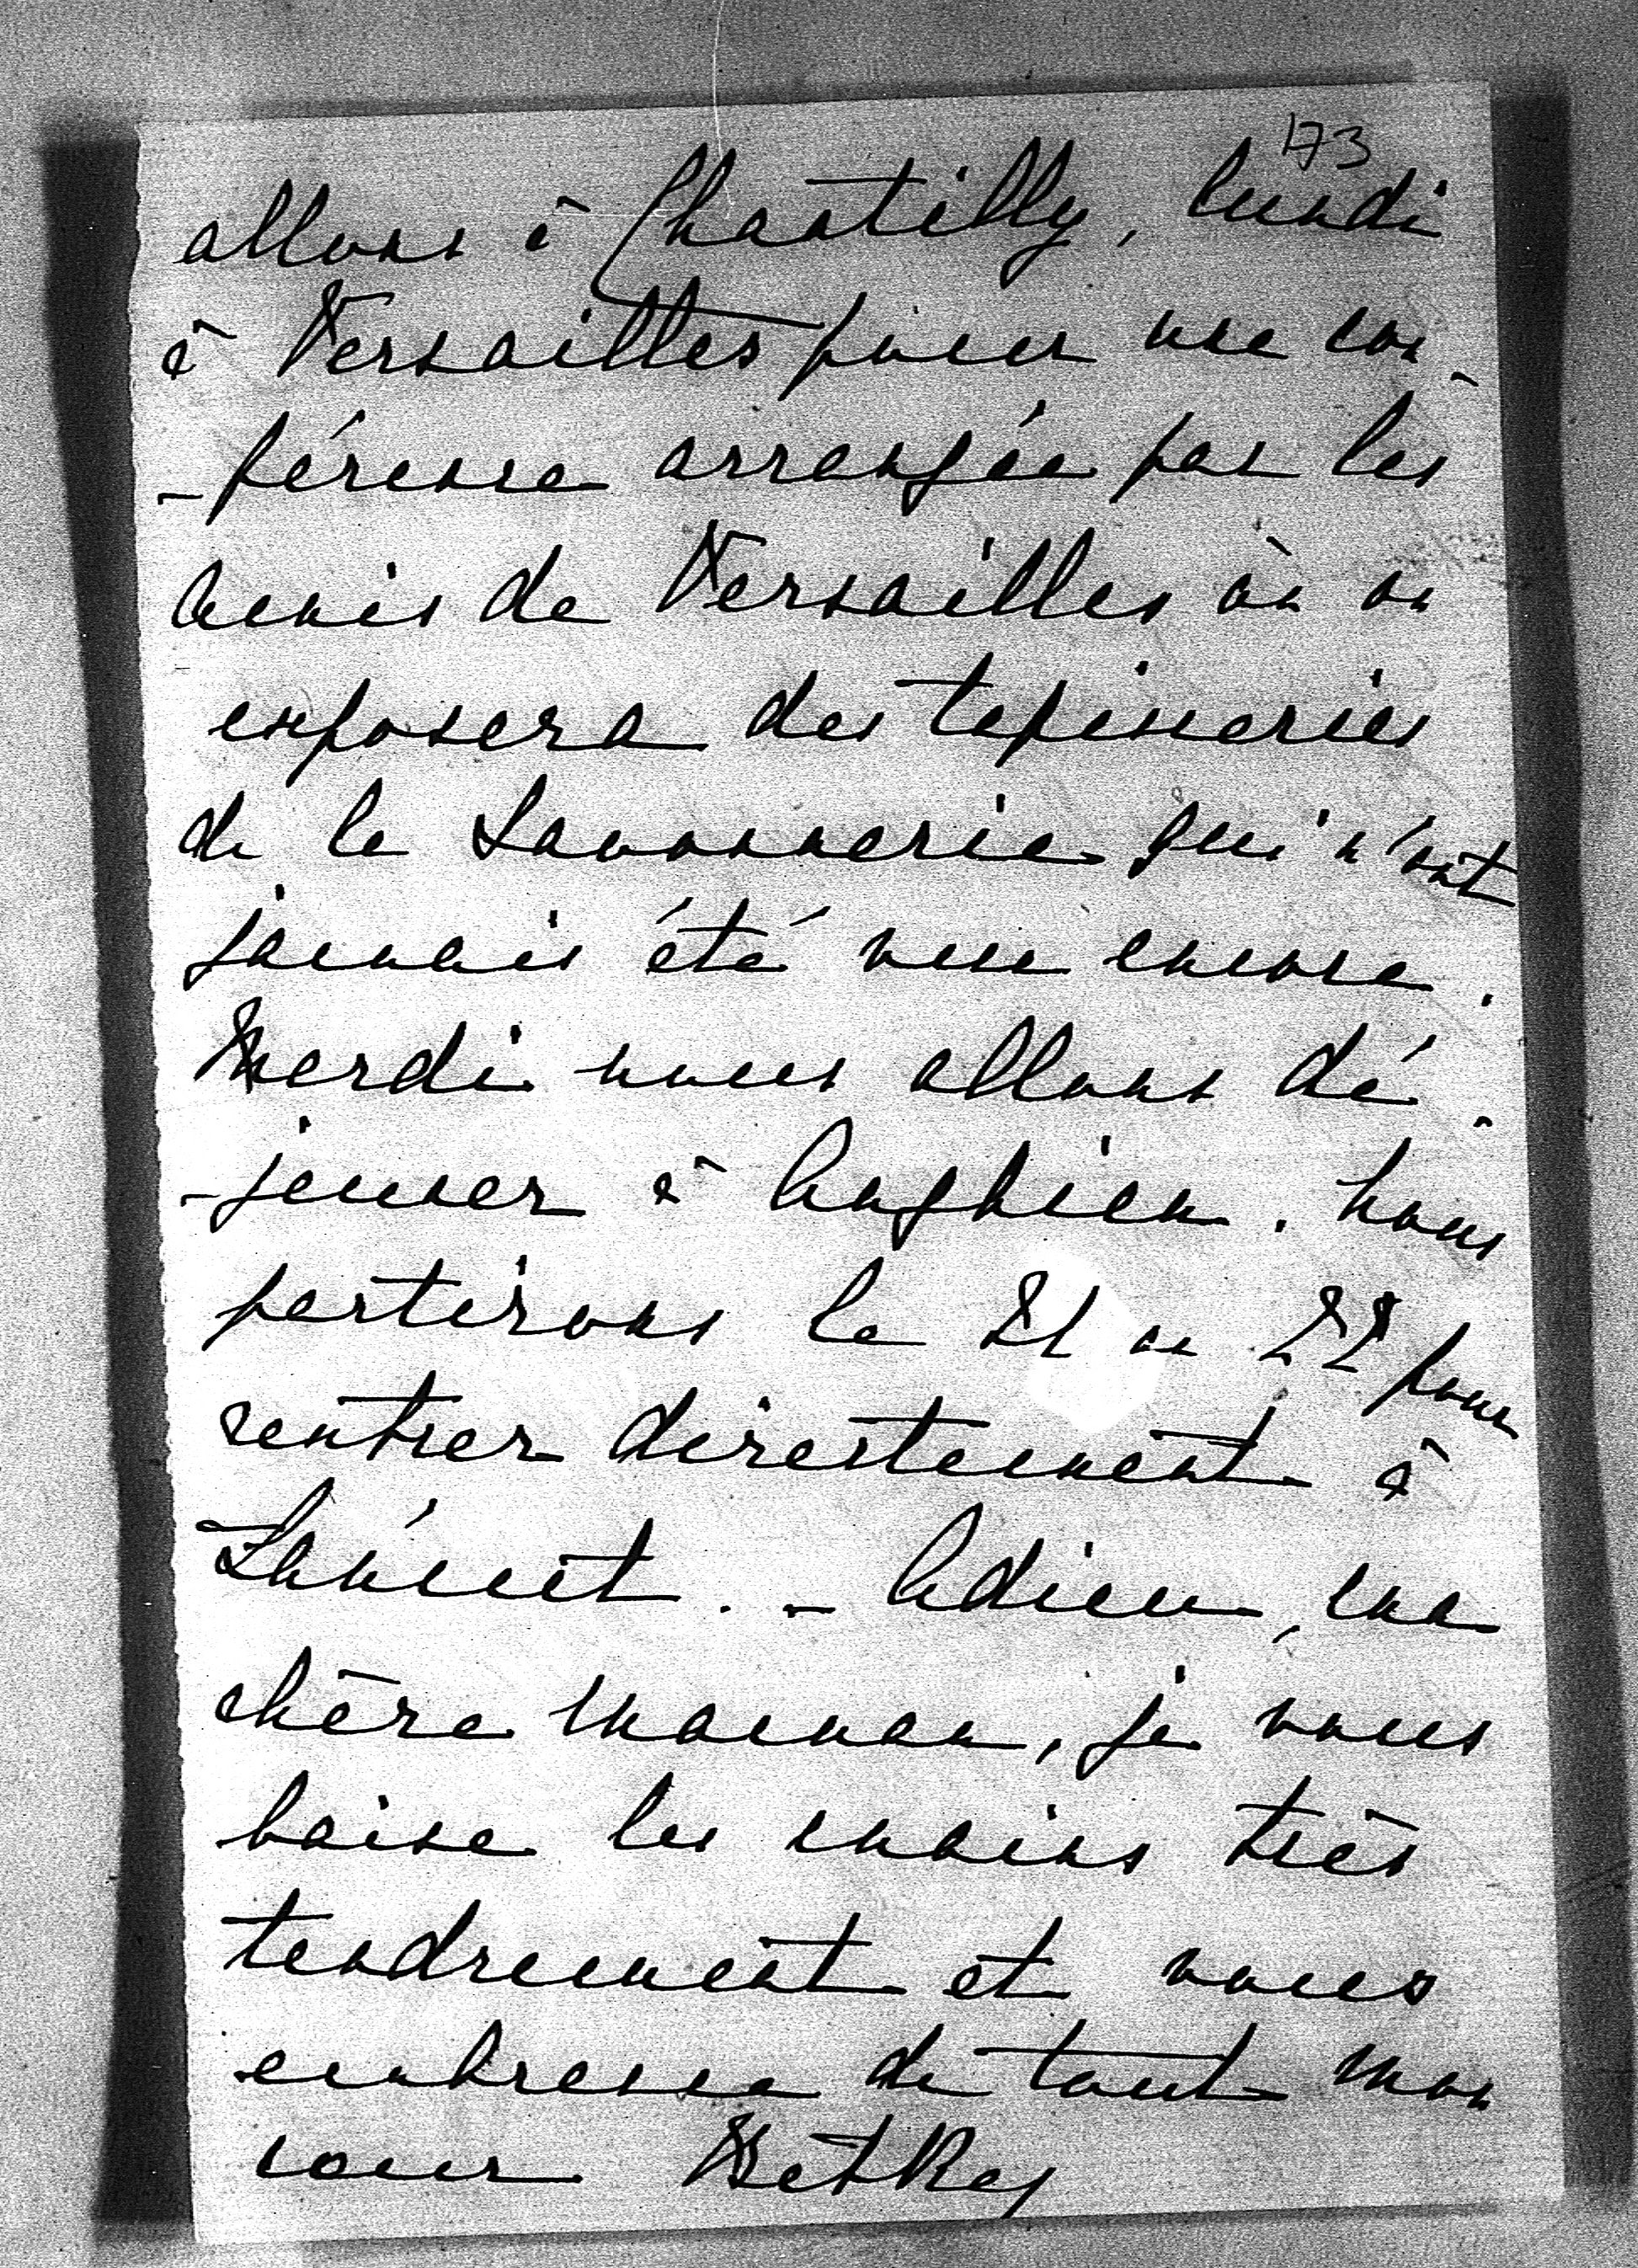 173
allons à Chantilly, lundi
à Versailles pour une con-
-férence arrangée par les
Amis de Versailles où on
exposera des tapisseries
de la Savonnerie qui n'ont
jamais été vue encore.
Mardi nous allons dé-
-jeuner à Enghien. Nous
partirons le 21 ou 22 pour
rentrer directement à
Łańcut. - Adieu, ma
chère Maman, je vous
baise les mains très
tendrement et vous
embrasse de tout mon
cœur Betka